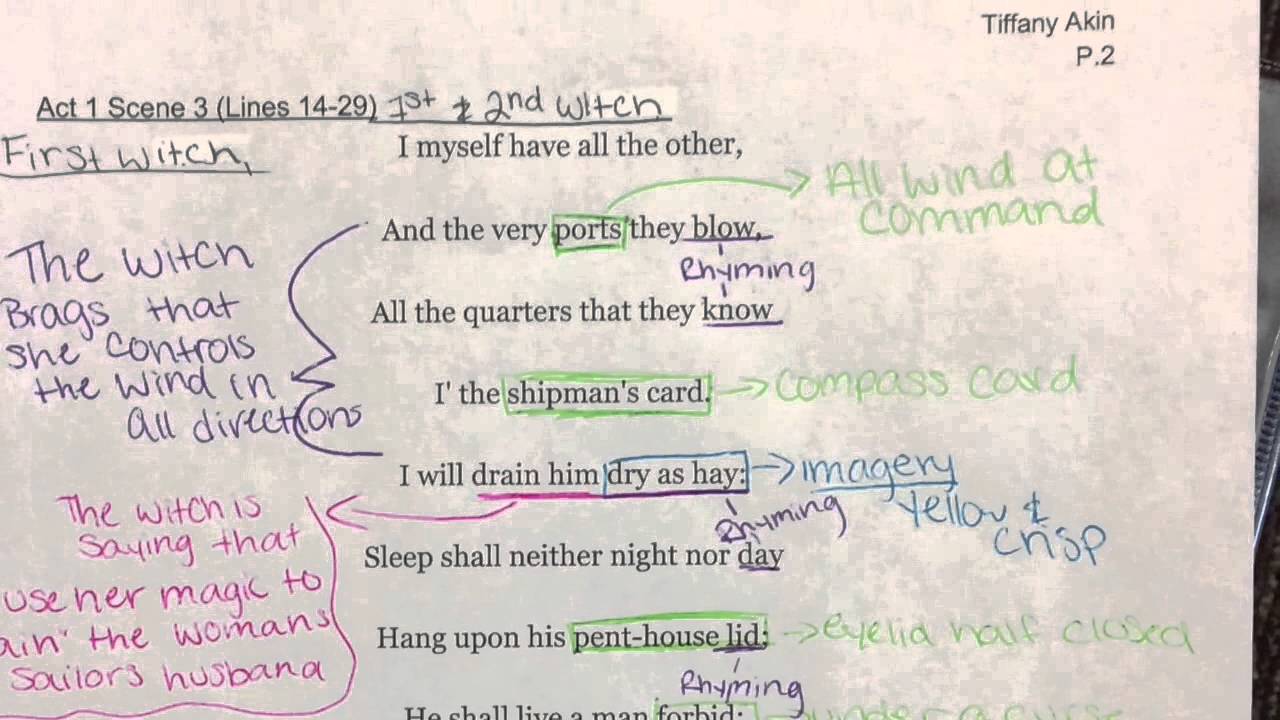 Tiffany Akin
P.2
Act 1 Scene 3 (Lines 14-29) 1st & 2nd witch
First witch,
I myself have all the other,
All wind at
command
And the very ports they blow,
Rhyming
The witch
Brags that
she controls
the wind in
all directions
All the quarters that they know
I' the shipman's card.
compass card
I will drain him dry as hay:
imagery
yellow &
crisp
Rhyming
The witch is
saying that
use her magic to
the womans
sailors husband
Sleep shall neither night nor day
Hang upon his pent-house lid;
eyelid half closed
Rhyming
He shall live a man forbid:
under a curse